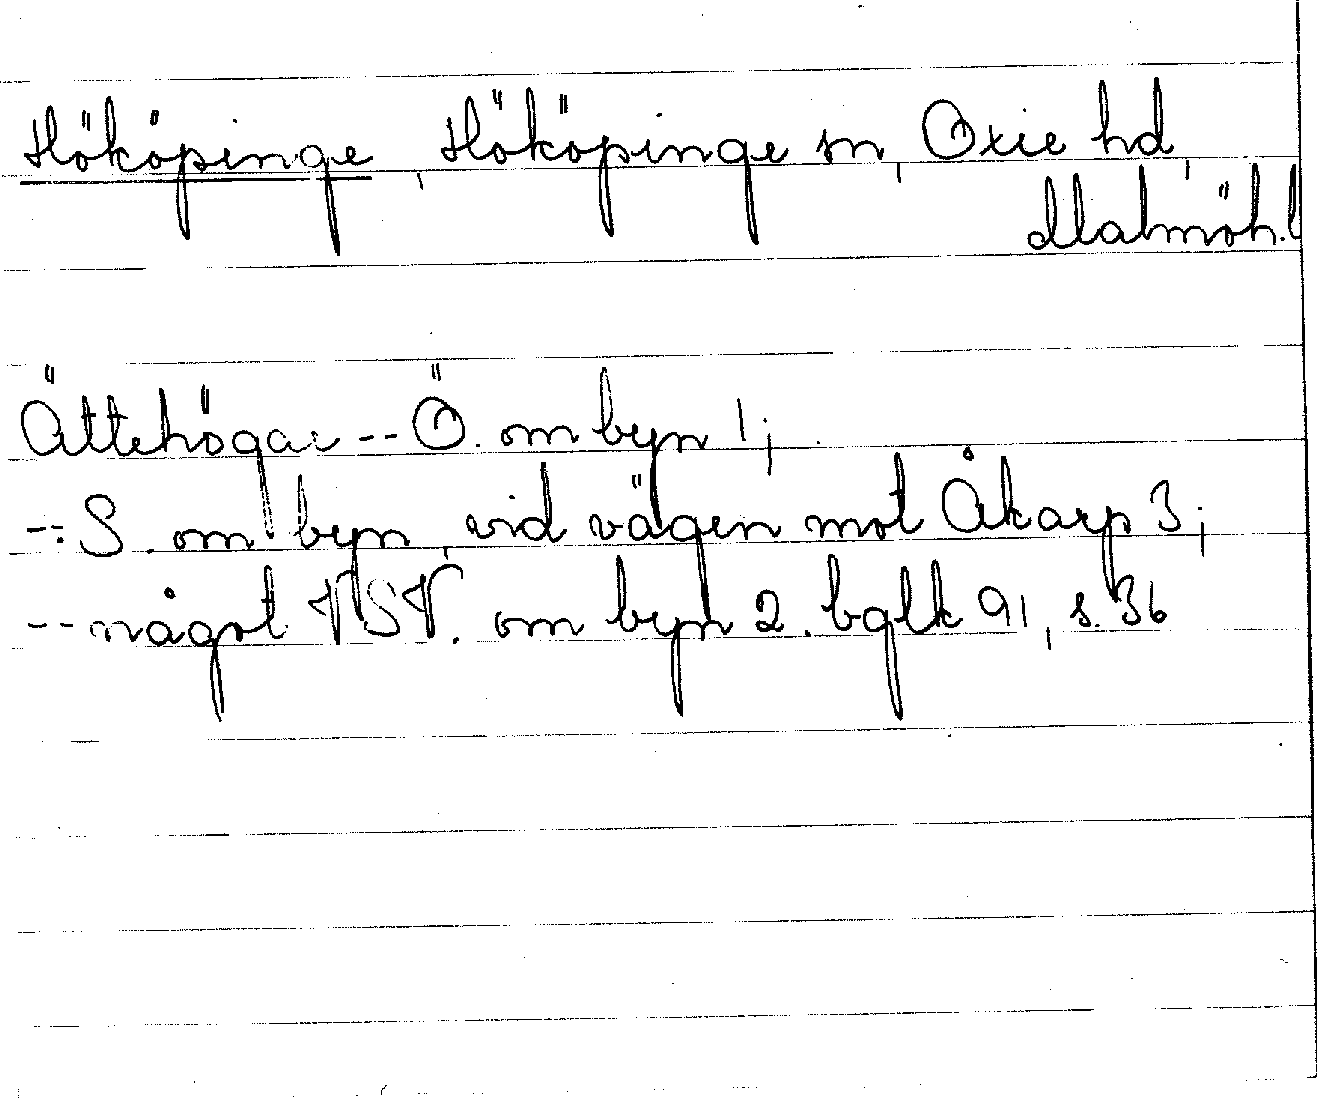 Hököpinge, Hököpinge sn, Oxie hd,
Malmöh.l
Ättehögar -- Ö. om byn 1;
-- S. om byn, vid vägen mot Åkarp 3;
-- något VSV. om byn 2. bglk 91, s. 36